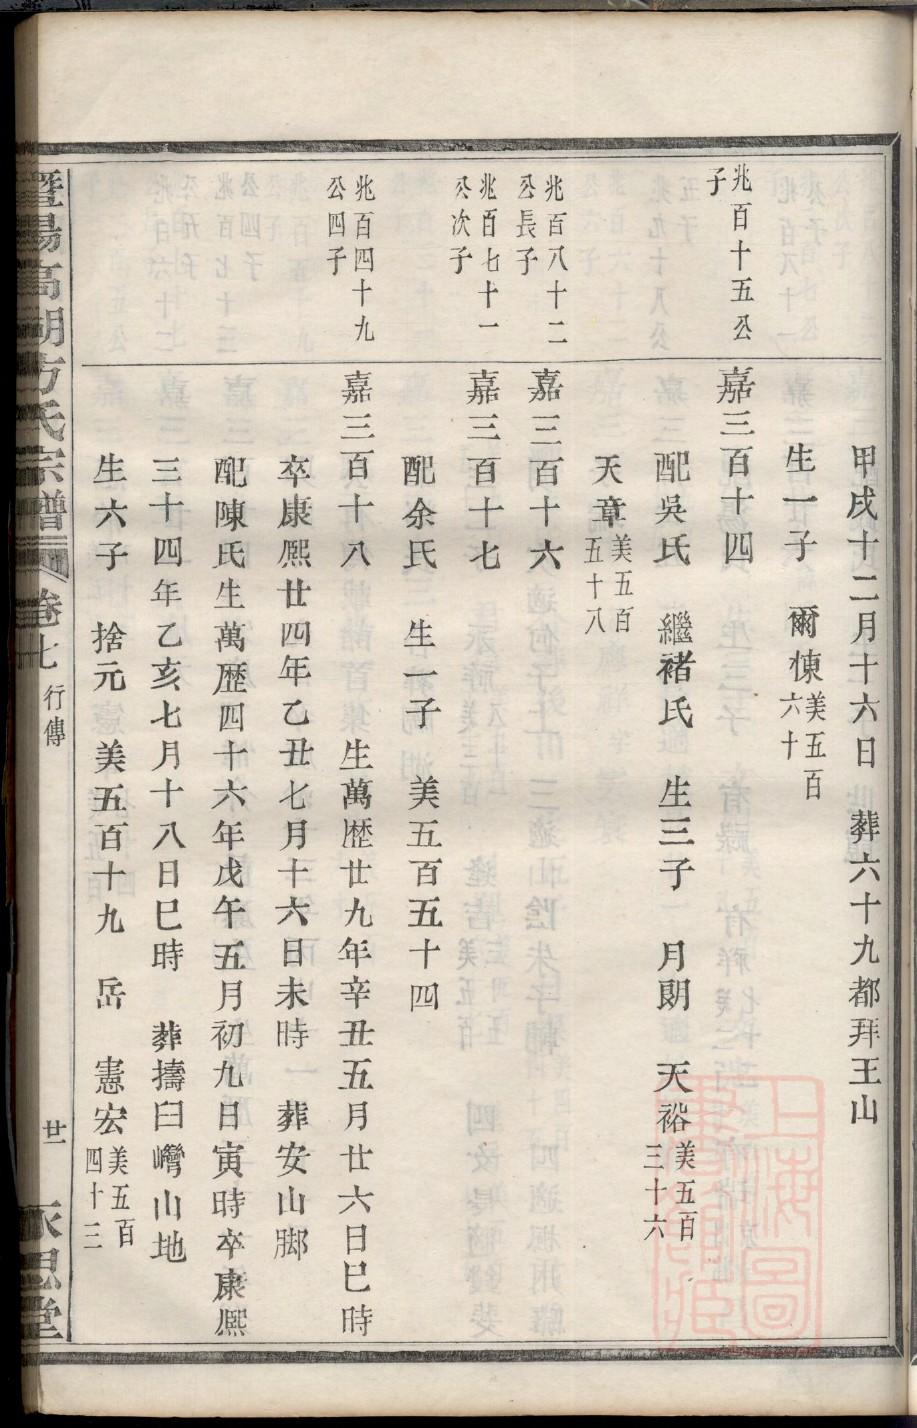 甲戌十二月十六日　葬六十九都拜王山
生一子　爾悚美五百六十
兆百十五公子
嘉三百十四
配吳氏　繼褚氏　生三子　月朗　天裕美五百三十六
天章美五百五十八
兆百八十二公長子
嘉三百十六
兆百七十一公次子
嘉三百十七
配余氏　生一子　美五百五十四
兆百四十九公四子
嘉三百十八　生萬歷廿九年辛丑五月廿六日巳時
卒康熙廿四年乙丑七月十六日未時　葬安山脚
配陳氏生萬歷四十六年戊午五月初九日寅時卒康熙
三十四年乙亥七月十八日巳時　葬擣臼巒山地
生六子　捨元　美五百十九　岳　憲宏美五百四十三
暨陽高湖方氏宗譜　卷七　行傳　廿一　永思堂